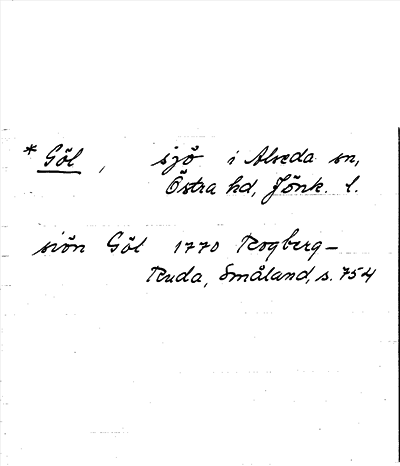 * Göl, sjö i Alseda sn,
Östra hd, Jönk. l.
siön Göl 1770 Rogberg-
Ruda, Småland, s. 754